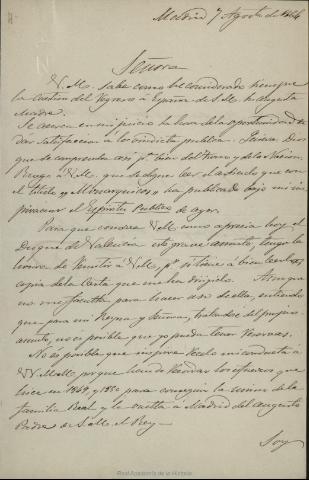 Madrid 7 Agosto de 1864
Señora
V. M. sabe como he considerado siempre
la cuestion del regreso á España de S. M. la augusta
Madre.
Se acerca en mi juicio la hora de la oportunidad de
dar satisfaccion á la vindicta publica. Quiera Dios
que se comprenda asi pª bien del Trono y de la Nacion.
Ruego á V. M. que se digne leer el articulo que con
el titulo "Monarquicos" ha publicado bajo mi ins
piracion el Espiritu Publico de ayer.
Para que conozca V. M. como aprecia hoy el
Duque de Valencia este grave asunto, tengo la
honra de remitir á V. M., pª si tiene á bien leerla,
copia de la Carta que me ha dirigido. Aunque
no me faculta para hacer uso de ella, entiendo
que para mi Reyna y Señora, tratandose del propio
asunto, no es posible que yo pueda tener reservas.
No es posible que inspire recelo mi conducta á
VV. MM. porque han de recordar los esfuerzos que
hice en 1849, y 1850 para conseguir la union de la
familia Real y la vuelta á Madrid del augusto
Padre de S. M. el Rey.
Soy
Real Academia de la Historia